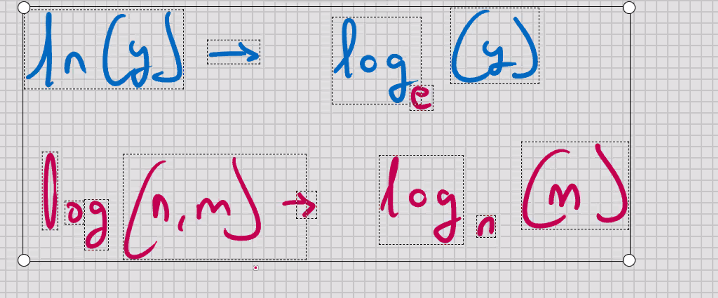 ln(y) → log_e (y)
log(n,m) → log_n (m)